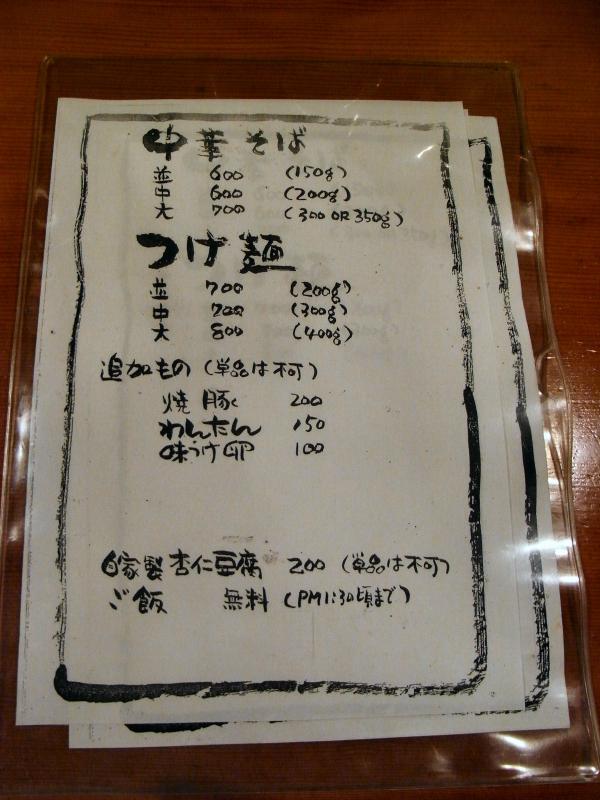 中華そば
並 600 (150g)
中 600 (200g)
大 700 (300 OR 350g)
つけ麺
並 700 (200g)
中 700 (300g)
大 800 (400g)
追加もの (単品は不可)
焼豚 200
わんたん 150
味つけ卵 100
自家製杏仁豆腐 200 (単品は不可)
ご飯 無料 (PM1:30頃まで)